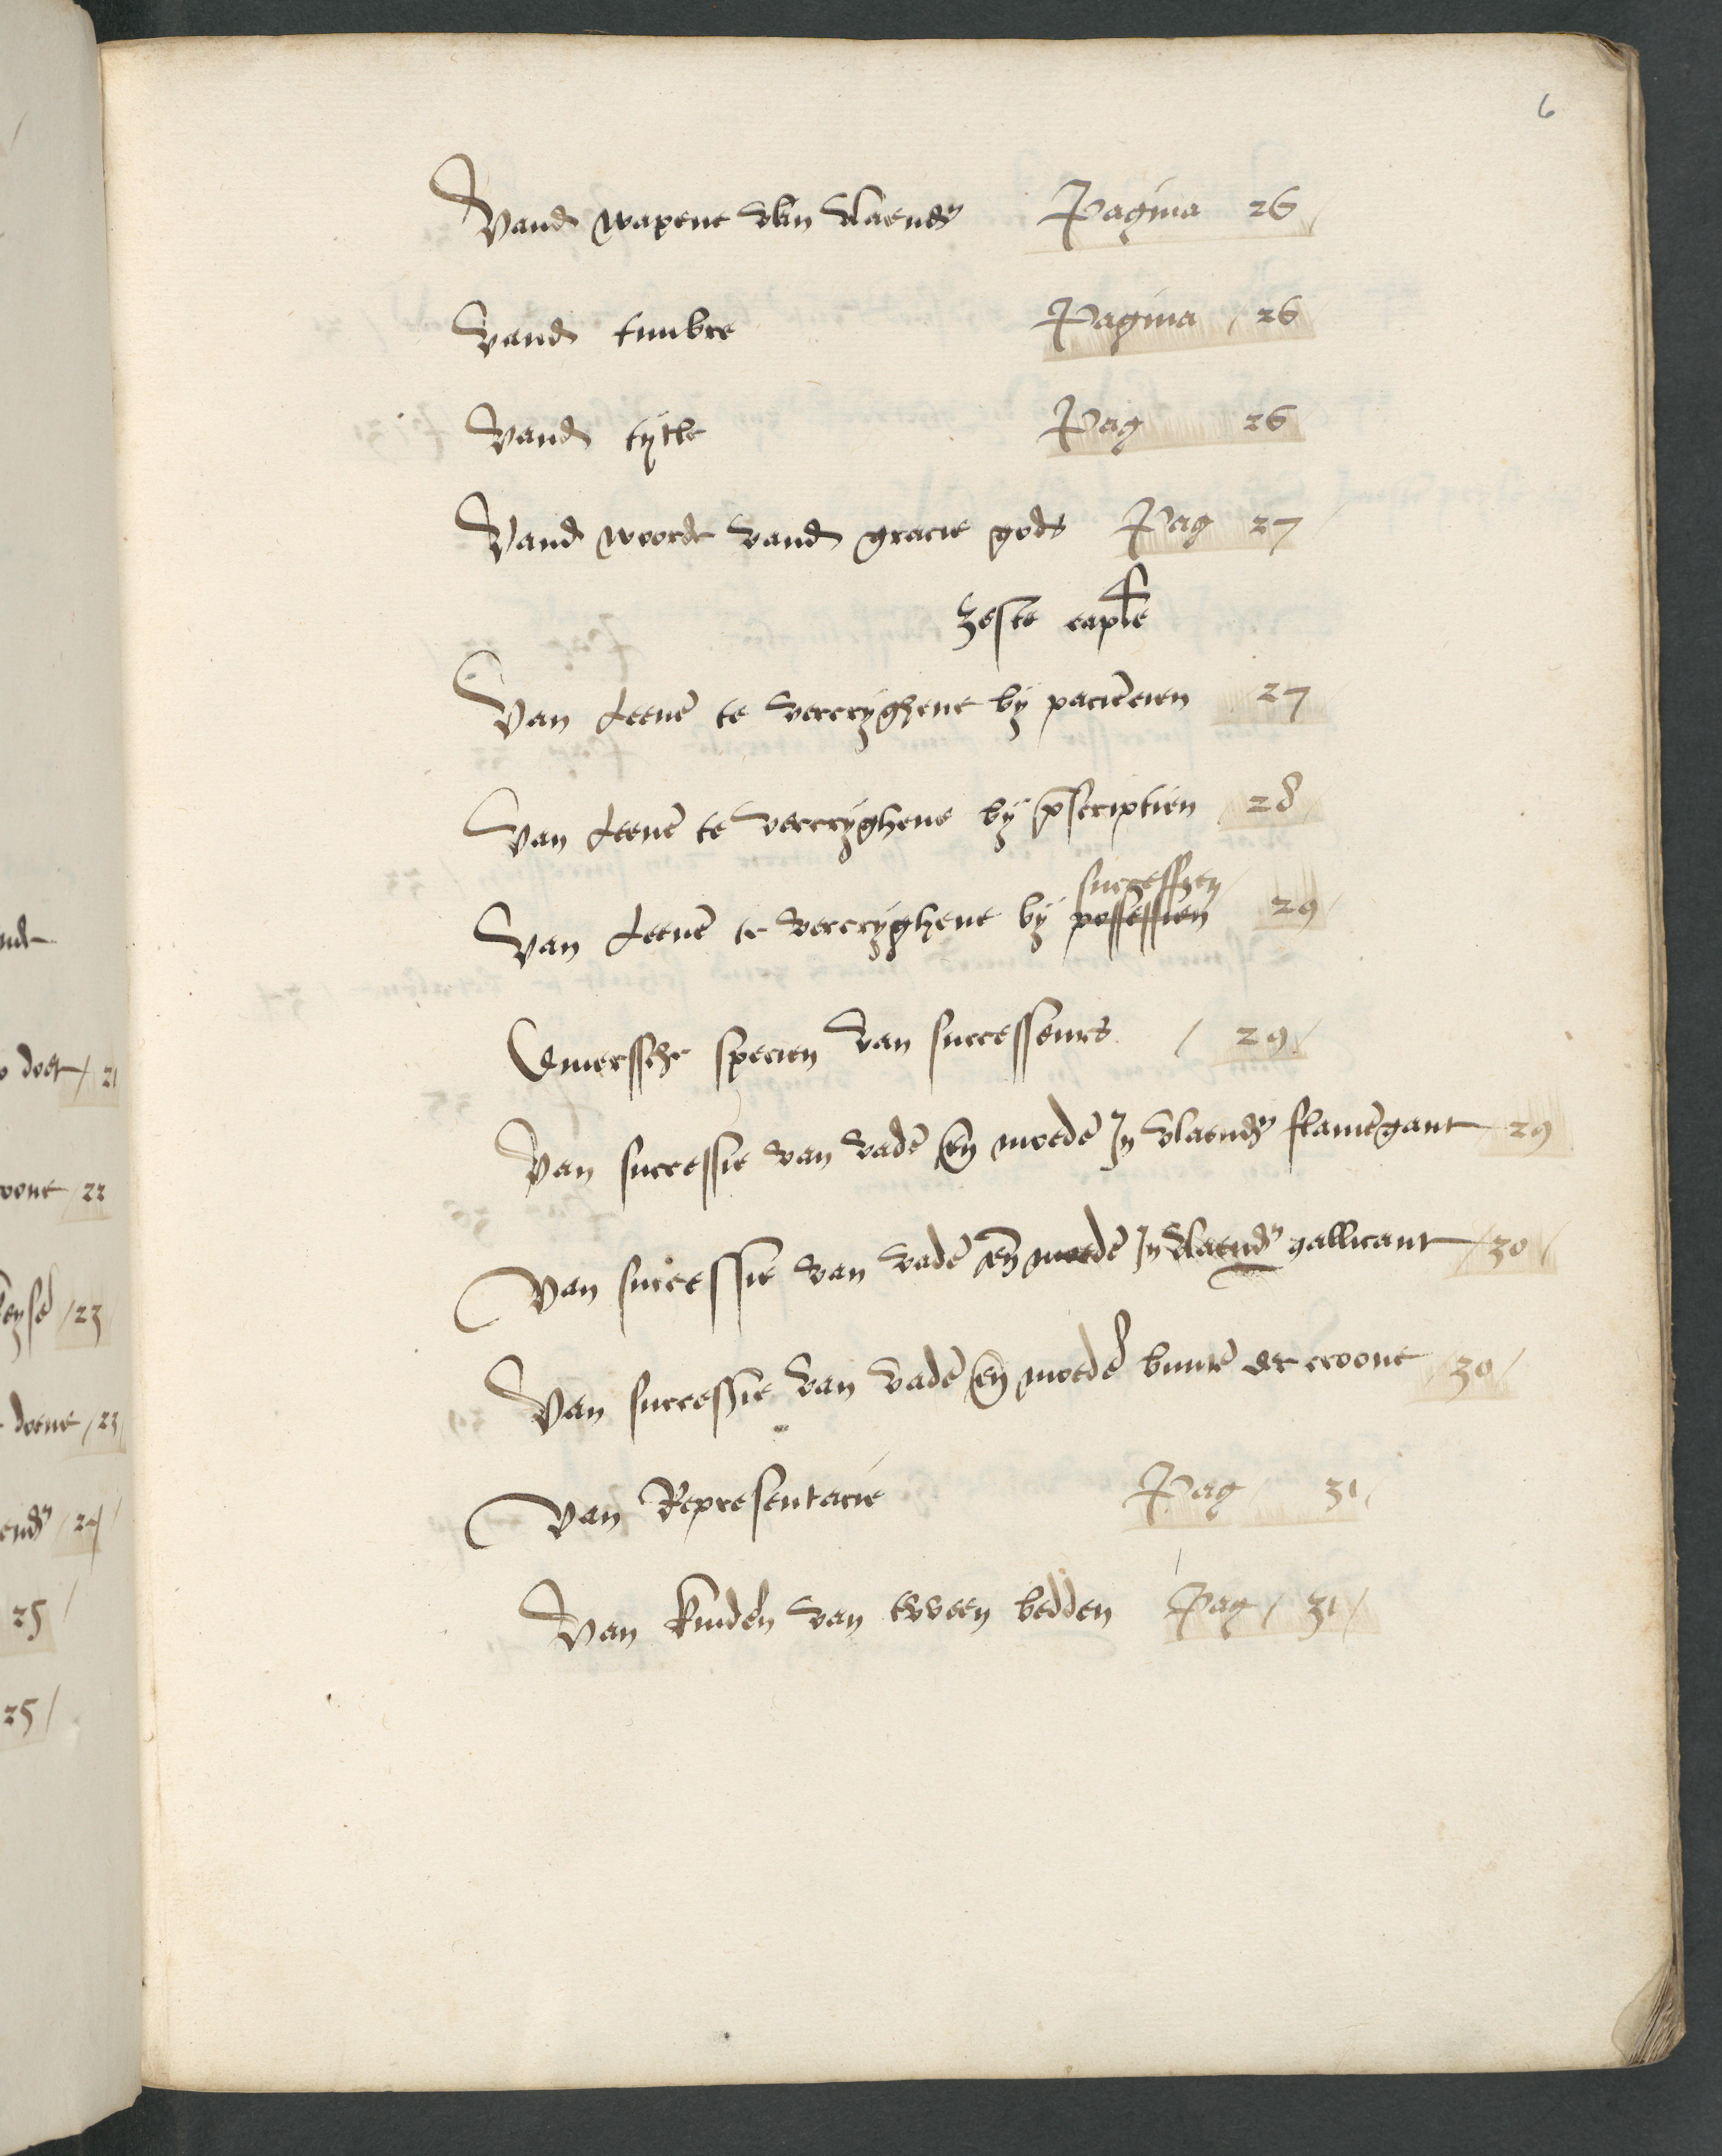 6
Vand wapene van vlaendr Pagina 26
Vand timbre Pagina / 26
Vand tytle Pag 26
Vand woorde vand gracie gods Pag 27
Zeste caple
Van Leenē te vercryghene by paciēcien 27
Van Leenē te vercryghene by p̄scriptien 28
successien
Van Leenē te vercryghene by possessien 29
Diverssche specien van successeurs / 29
Van successie van vadē eñ moedē In vlaendr flamēgant 29
Van successie van vadē eñ moedē In vlaendr gallicant / 30
Van successie van vadē eñ moedē binnē der croone / 30 /
Van Representacie Pag 31
Van kindēn van tween bedden Pag / 31 /
doet / 21
croone / 22
23
doene / 23
24
25 /
25 /